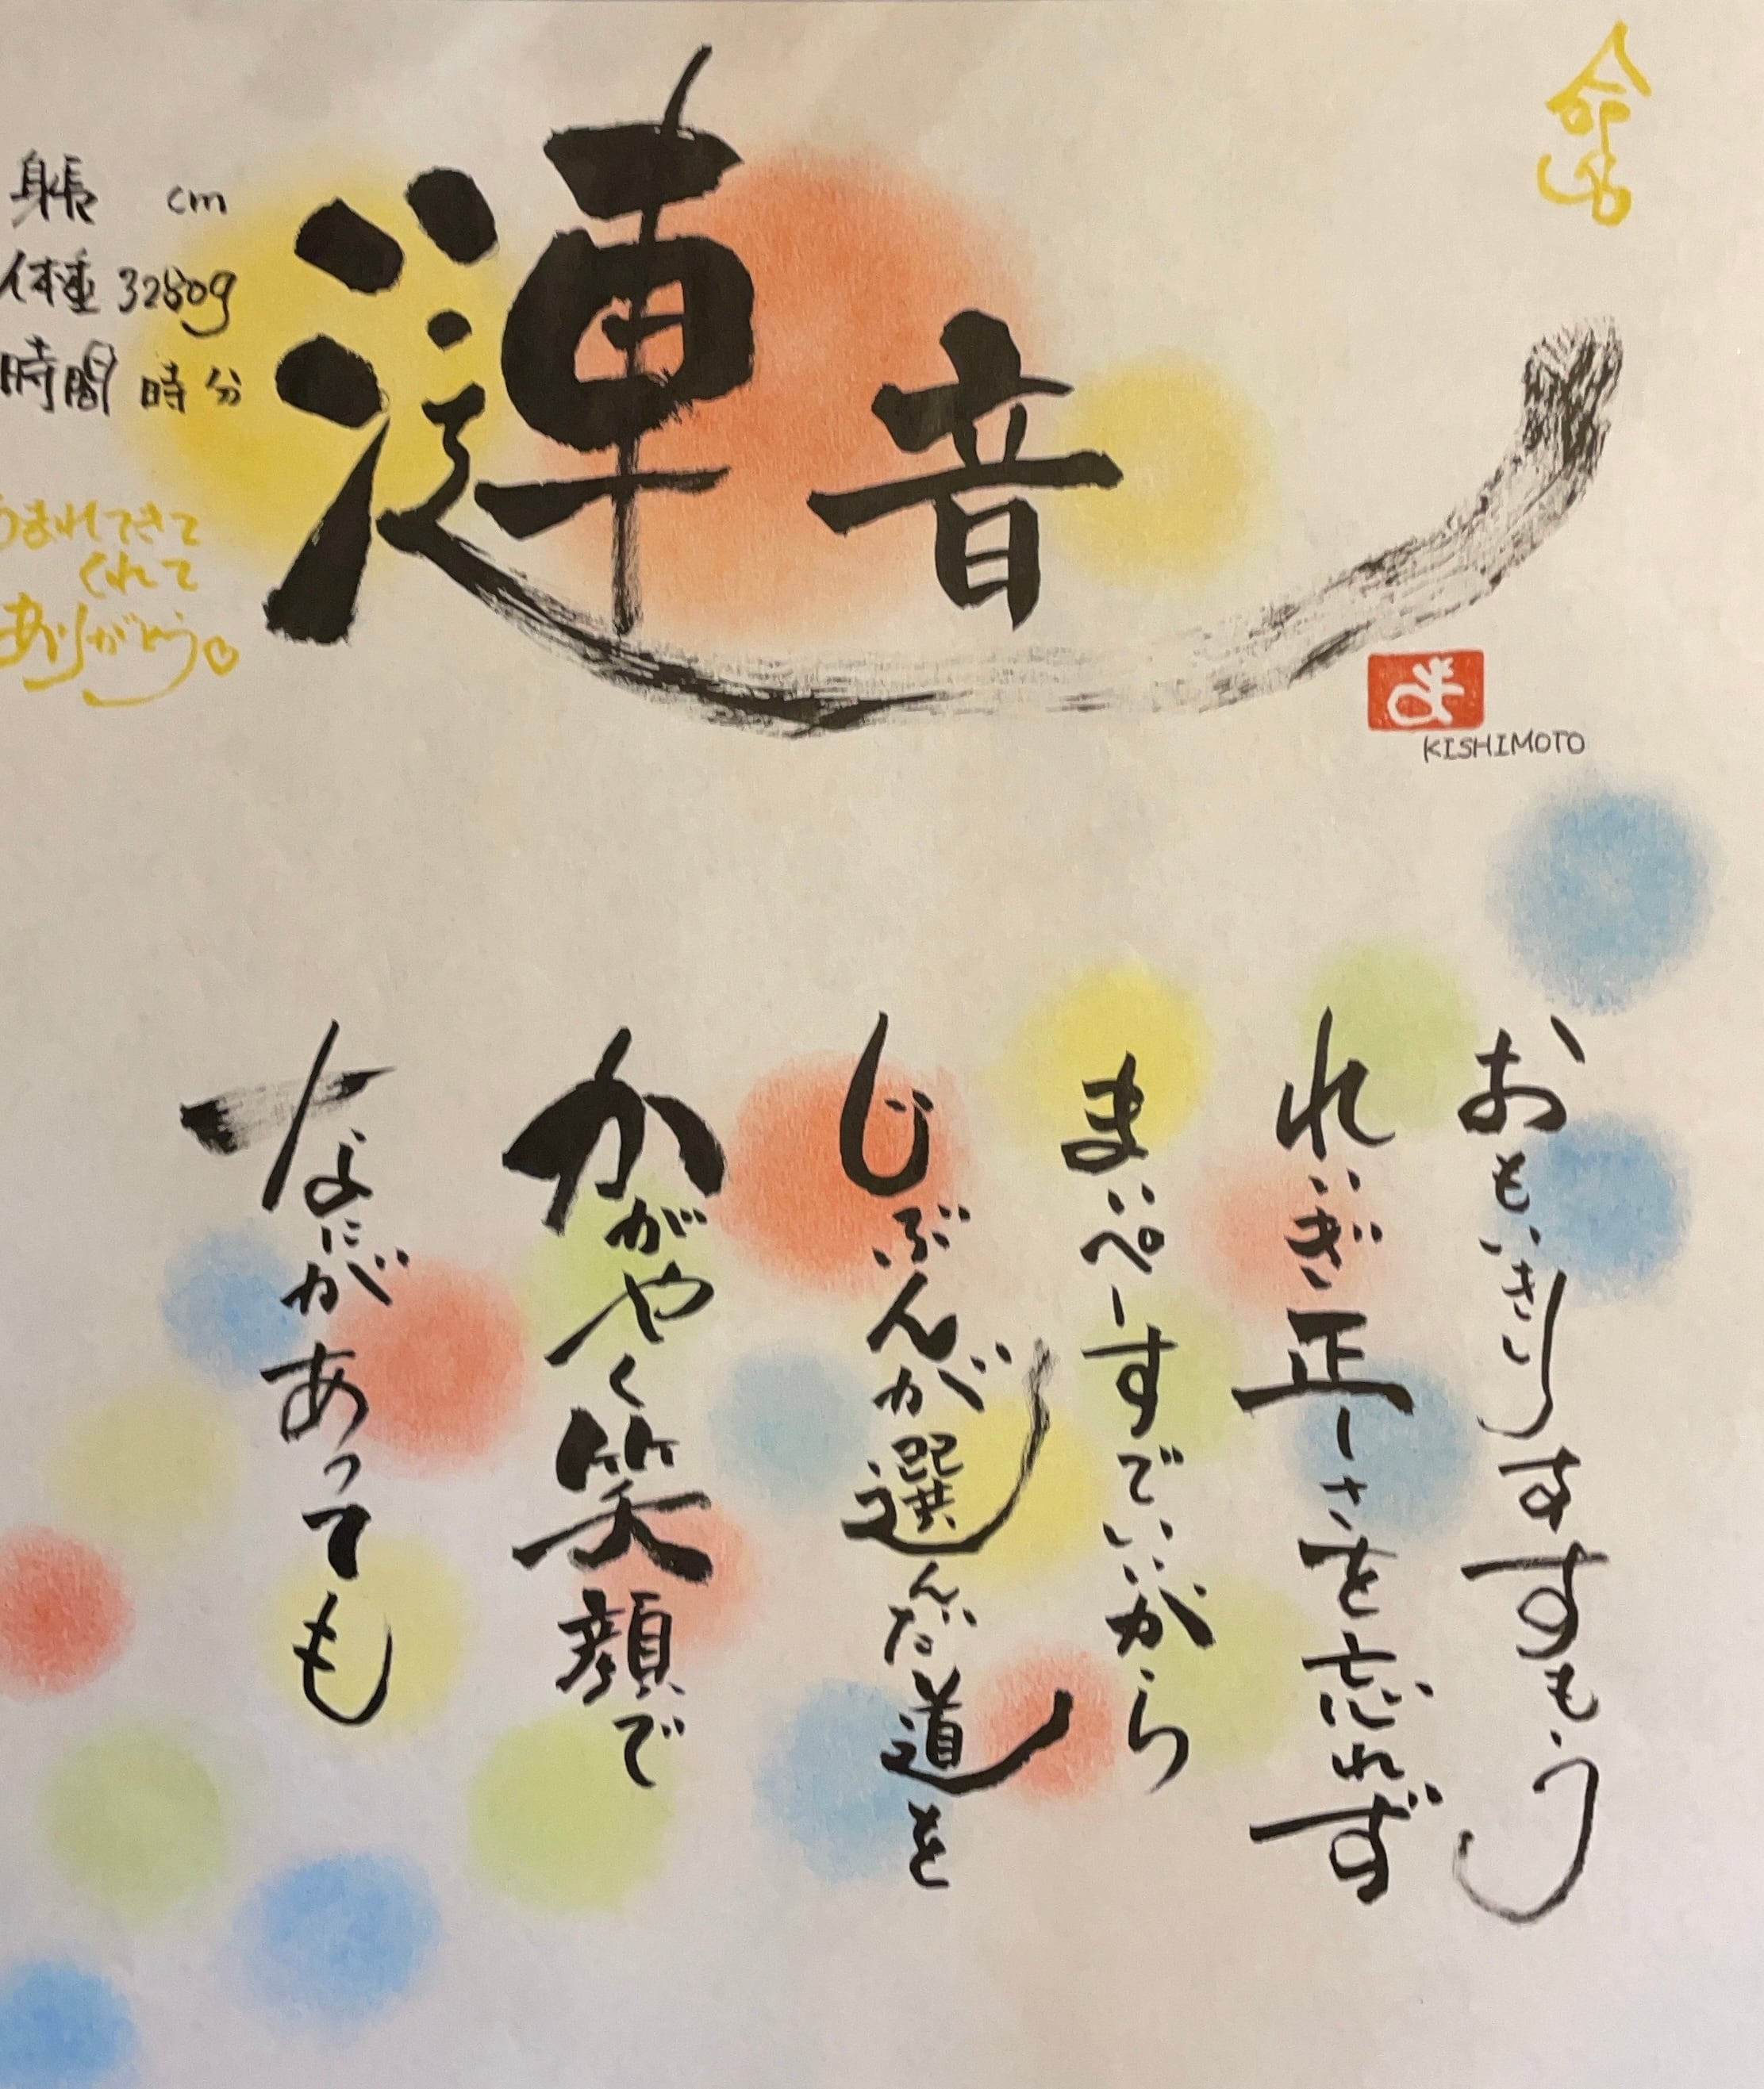 命名
漣音
身長 cm
体重 3280g
時間 時 分
うまれてきて
くれて
ありがとう♡
ま
KISHIMOTO
おもいきりすすもう
れいぎ正しさを忘れず
まいぺーすでいいから
じぶんが選んだ道を
かがやく笑顔で
なにがあっても